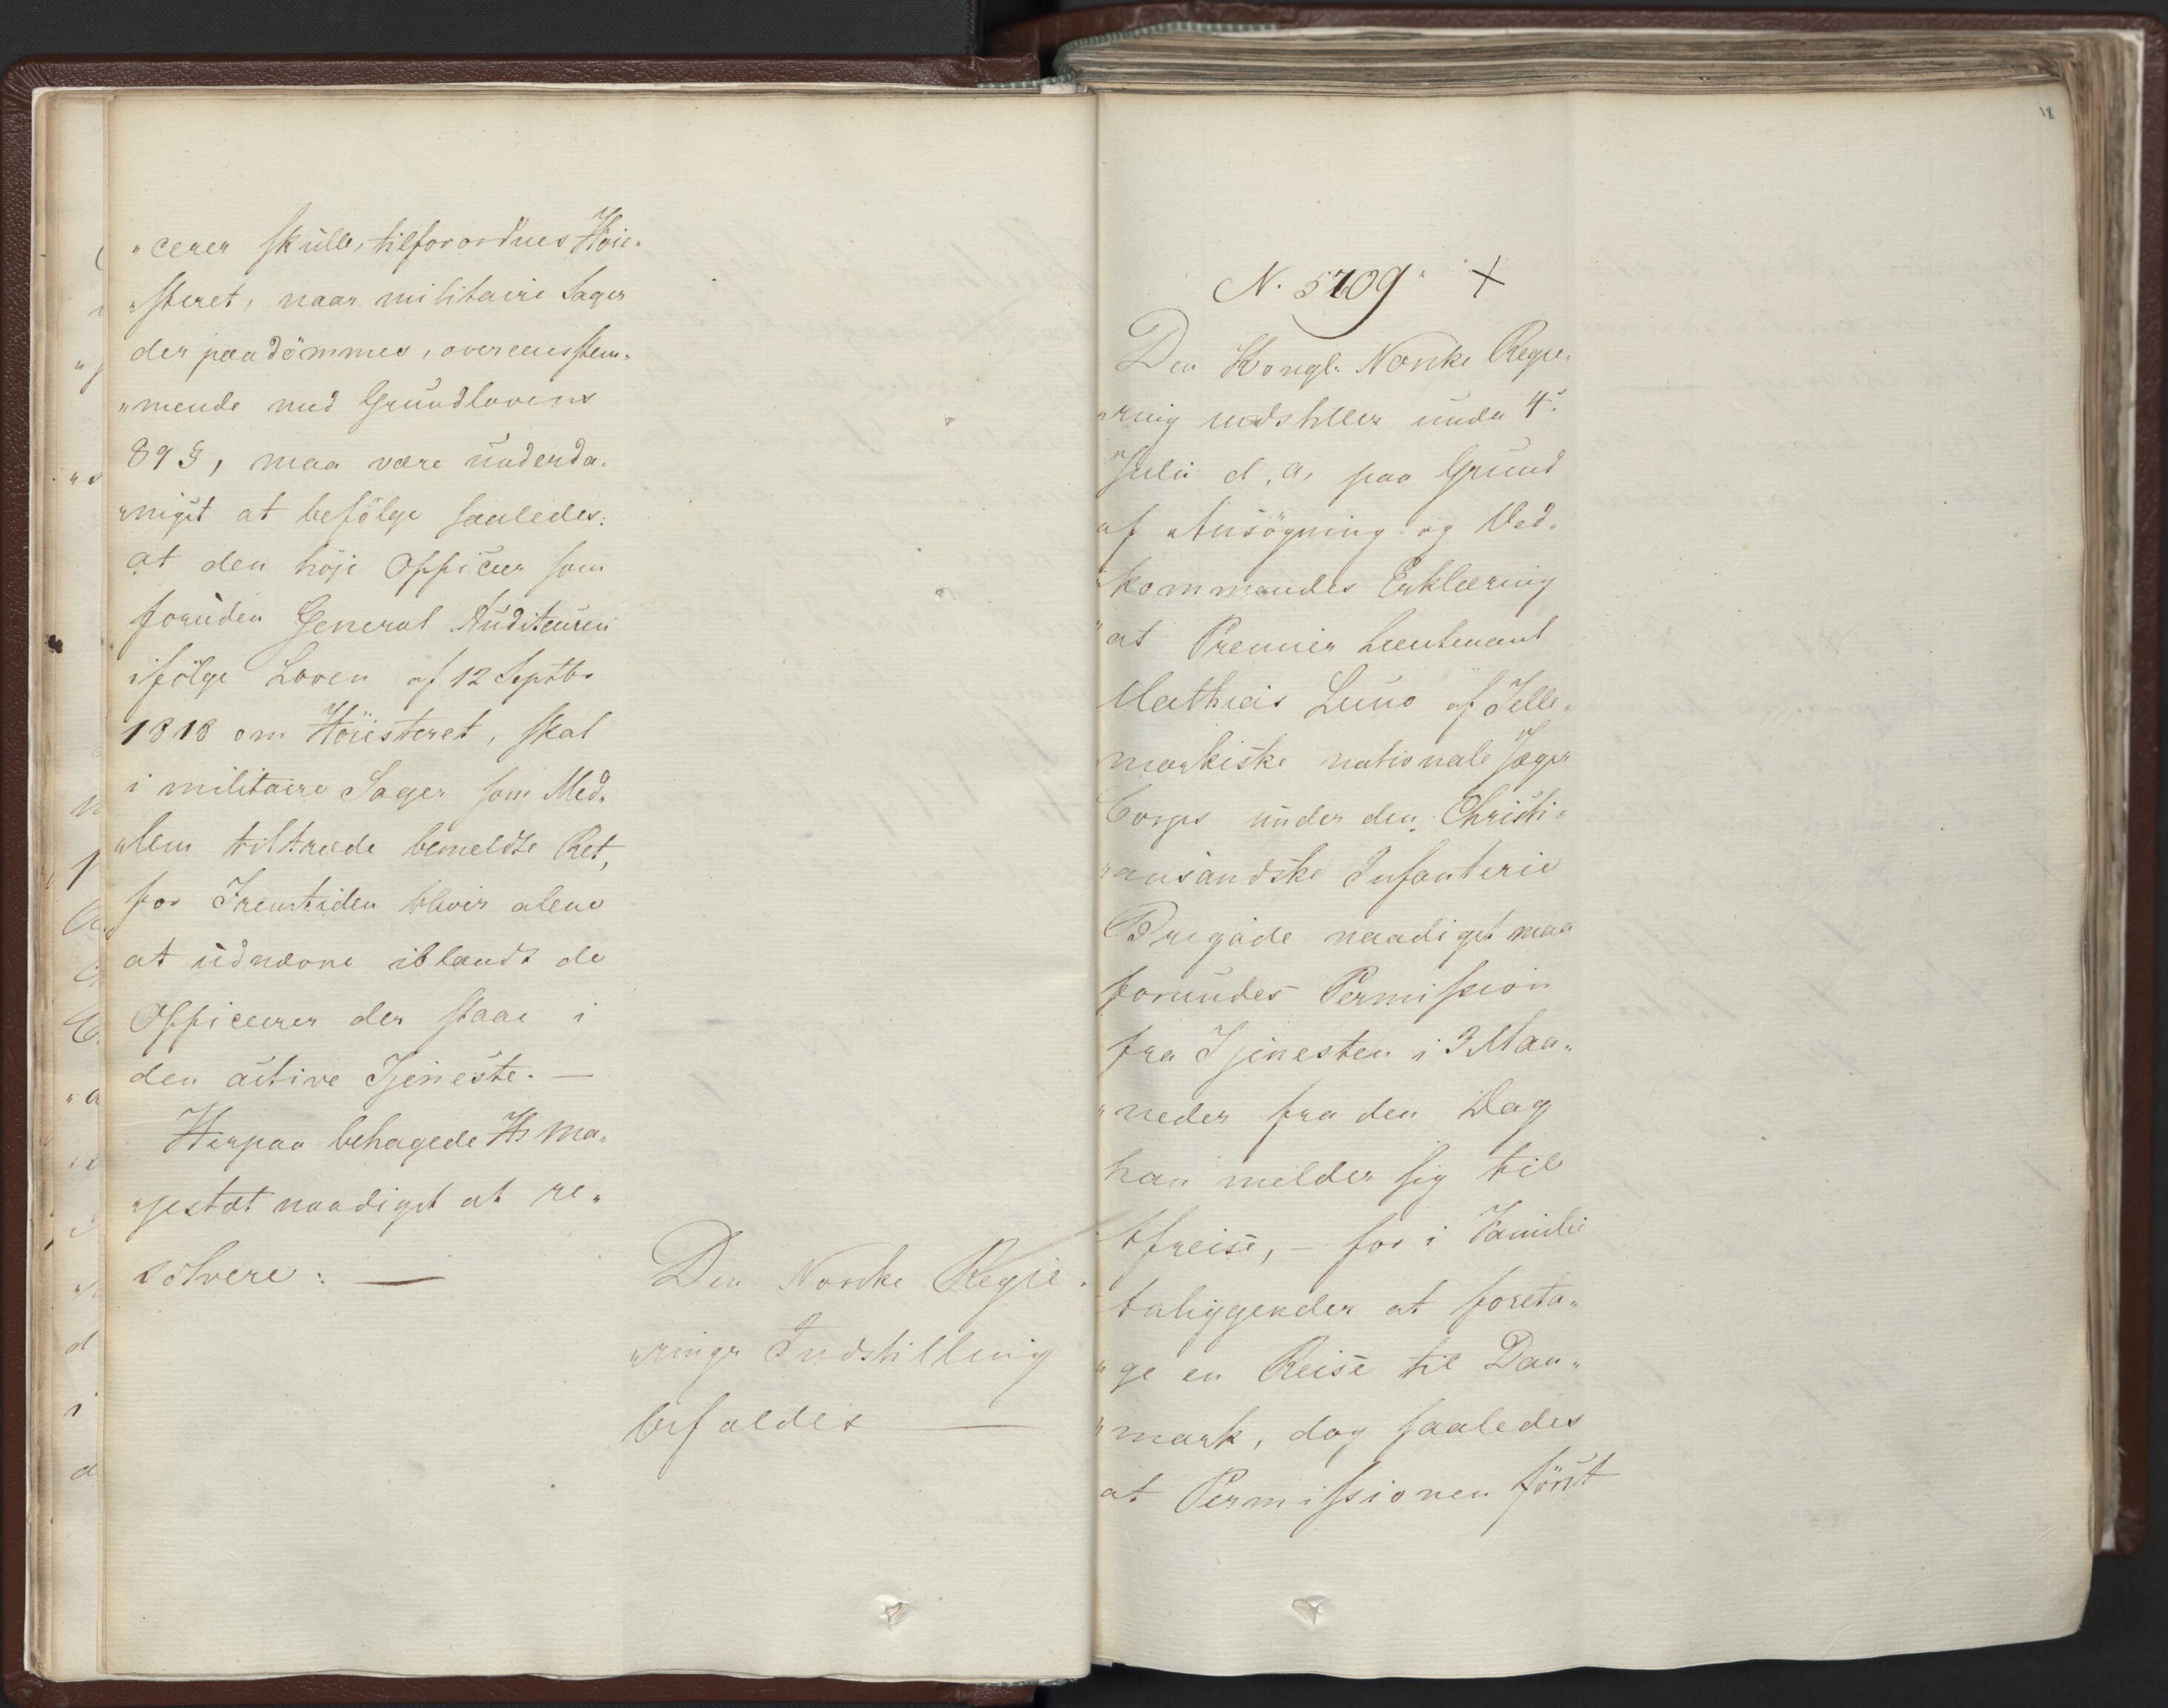 „cerer skulle, tilforordnes Höie„
„steret, naar militaire Sager
der paadömmes, overeensstem„
„mende med Grundlovens
89 §, maa være underda„
„nigst at befölge saaledes:
at den höje Officeer som
foruden General Auditeuren
ifölge Loven af 12 Septbr
1818 om Höiesteret, skal
i militaire Sager som Med„
„lem tiltræde bemeldte Ret,
for Fremtiden bliver alene
at udnævne iblandt de
Officerer der staae i
den active Tjeneste. —
Herpaa behagede Hs Ma„
„jestæt naadigst at re„
solvere: —
Den Norske Regie„
„rings Indstilling
bifaldes —
18
N. 5709. X
Den Kongl. Norske Regie„
„ring indstiller under 4.
Julii d. a. paa Grund
af Ansögning og Ved„
„kommandes Erklæring
at Premier Lieutenant
Mathias Luno af Telle„
markiske nationale Jæger
Corps under den Christi„
„ansandske Infanterie
Brigade naadigst maa
forundes Permission
fra Tjenesten i 3 Maa„
„neder fra den Dag
han melder sig til
Afreise, – for i Familie
Anliggender at foreta„
„ge en Reise til Dan„
„mark, dog saaledes
at Permissionen först